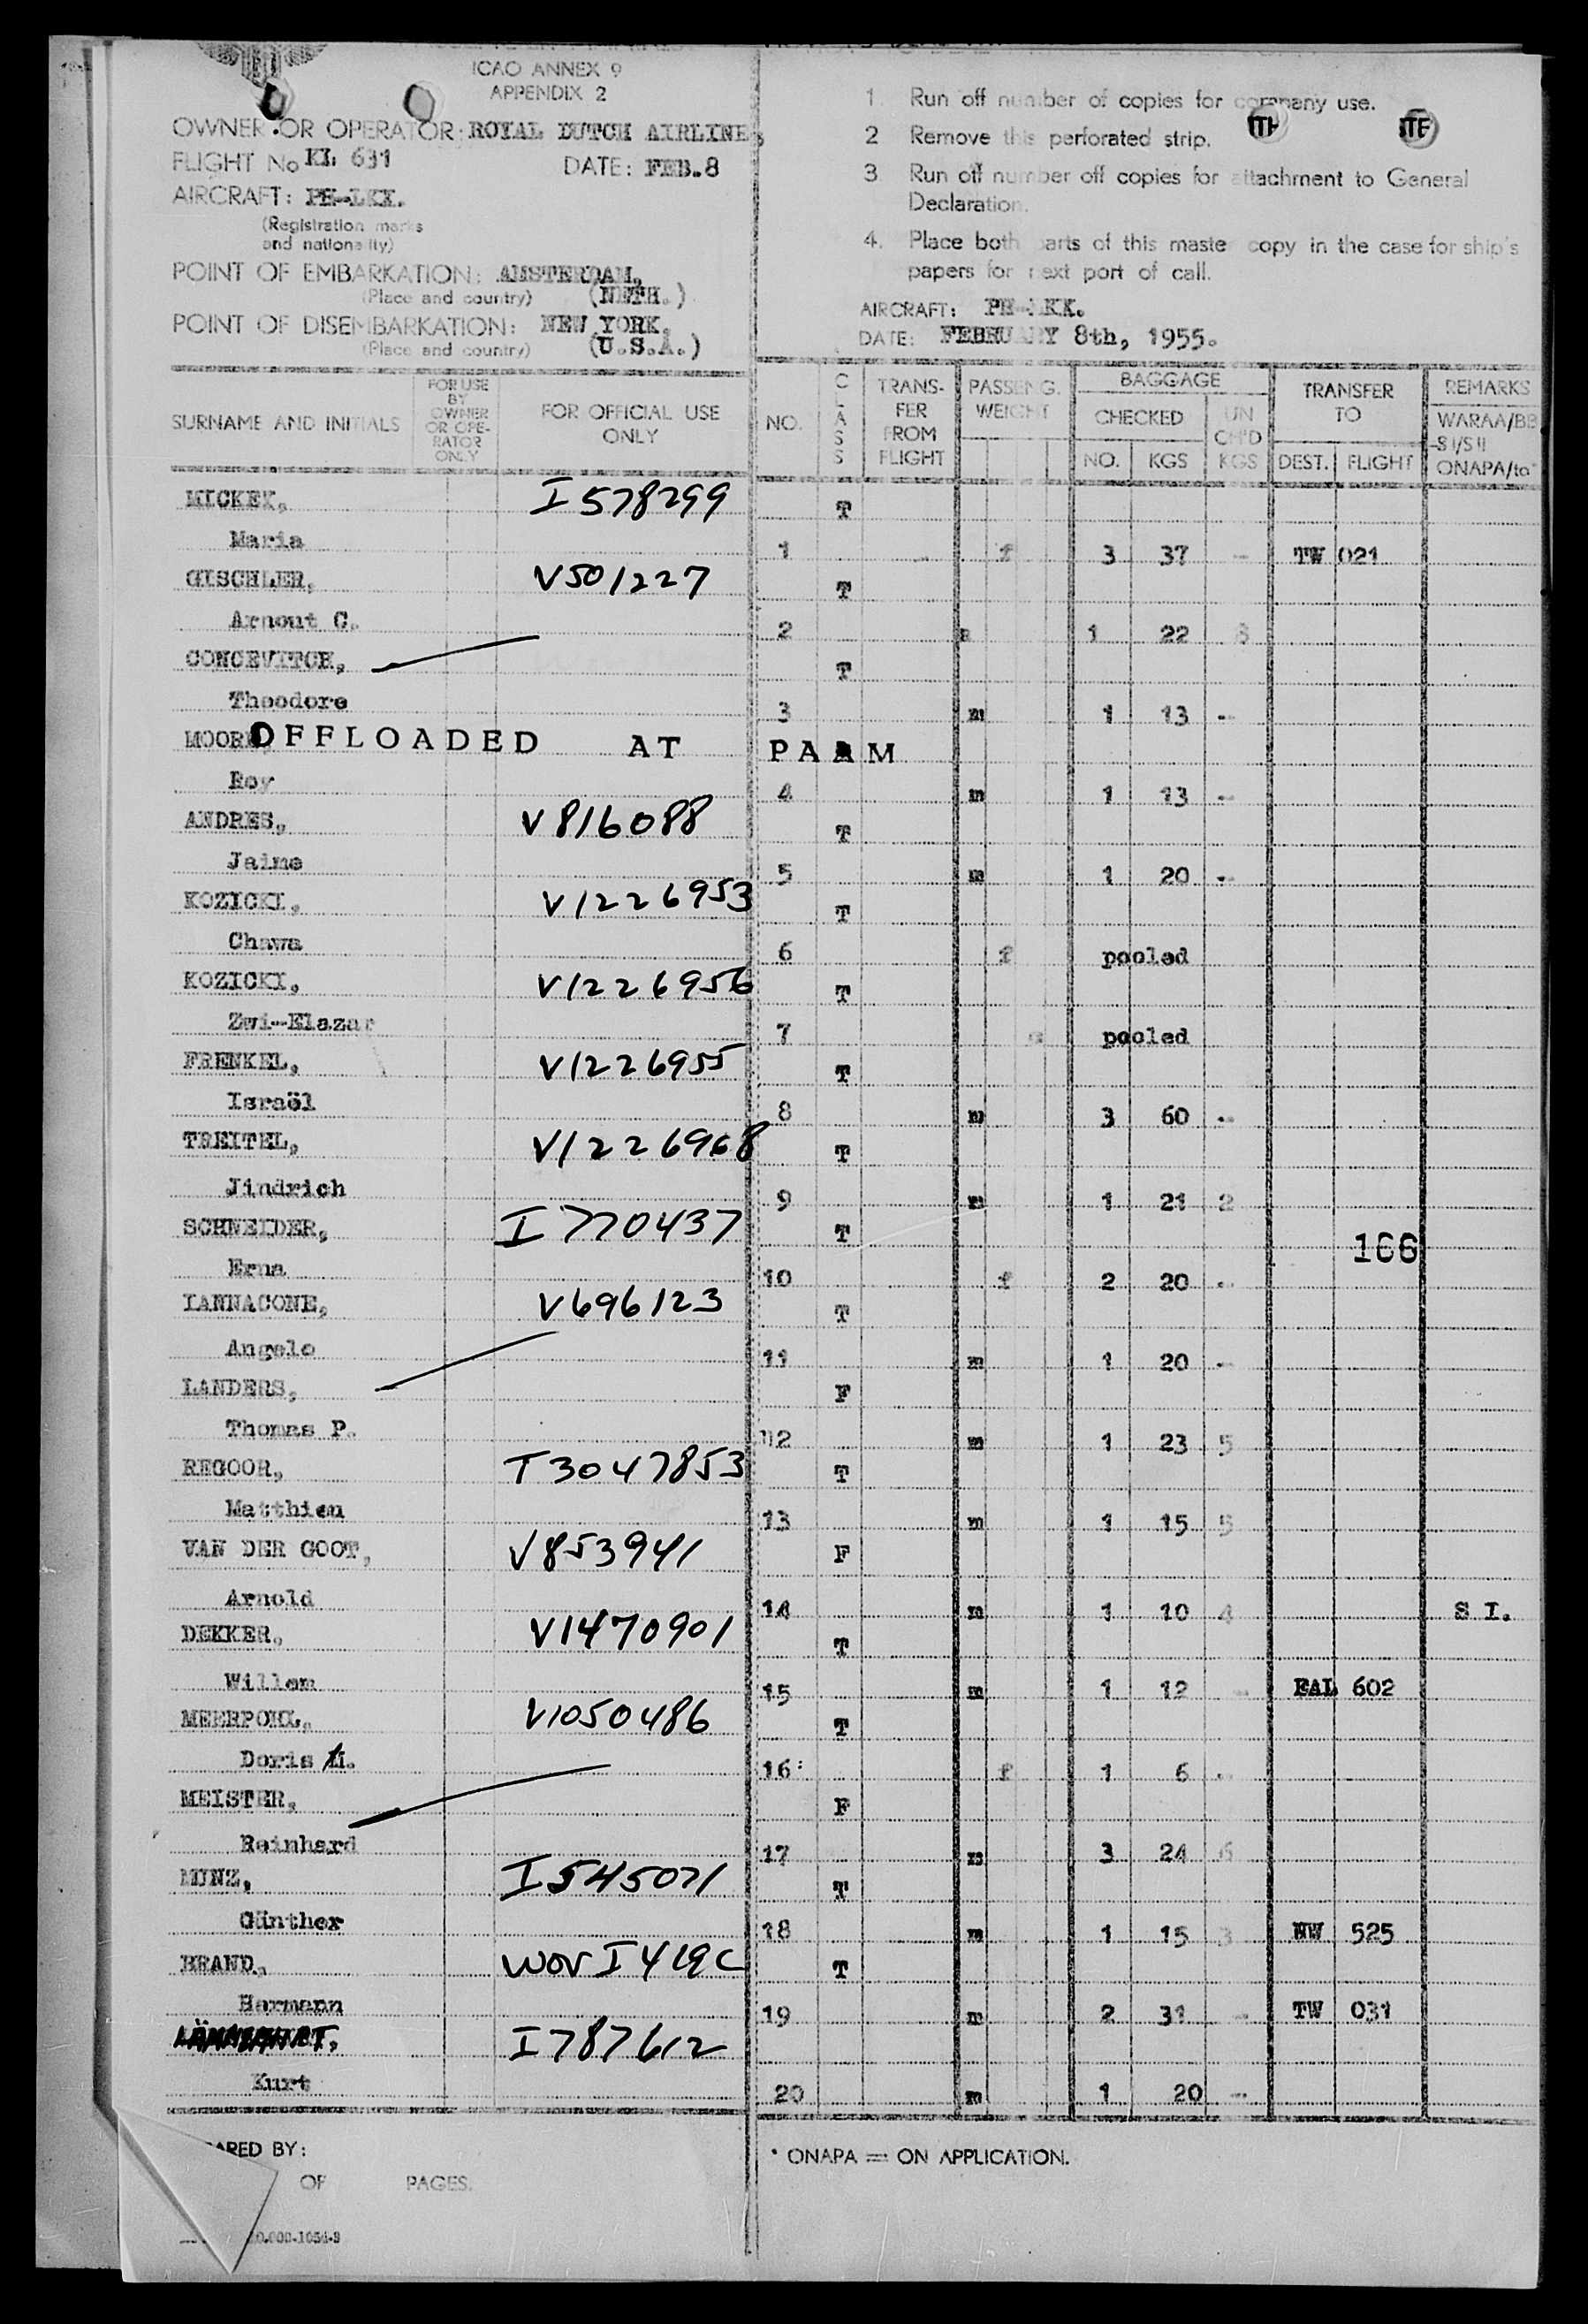 ICAO ANNEX 9
APPENDIX 2
OWNER OR OPERATOR: ROYAL DUTCH AIRLINE,
FLIGHT No KL 631 DATE: FEB.8
AIRCRAFT:
(Registration marks
and nationality)
POINT OF EMBARKATION: AMSTERDAM,
(Place and country) (NETH.)
POINT OF DISEMBARKATION: NEW YORK,
(Place and country) (U.S.A.)
1. Run off number of copies for company use.
2 Remove this perforated strip.
3 Run off number off copies for attachment to General
Declaration.
4. Place both parts of this maste copy in the case for ship's
papers for next port of call.
AIRCRAFT: PH-LKK.
DATE: FEBRUARY 8th, 1955.
SURNAME AND INITIALS
FOR USE
BY
OWNER
OR OPE-
RATOR
ONLY
FOR OFFICIAL USE
ONLY
NO.
CLASS
TRANS-
FER
FROM
FLIGHT
PASSENG.
WEIGHT
BAGGAGE
CHECKED
UN
CH'D
NO. KGS KGS
TRANSFER
TO
DEST. FLIGHT
REMARKS
WARAA/BB
SI/SII
ONAPA/to*
MICKEK, I578299 T
Maria 1 f 3 37 - TW 021
GISCHLER, V501227 T
Arnout C. 2 m 1 22 8
CONCEVITCH, T
Theodore 3 m 1 13 -
MOORE OFFLOADED AT PAAM
Roy 4 m 1 13 -
ANDRES, V816088 T
Jaime 5 m 1 20 -
KOZICKI, V1226953 T
Chawa 6 f pooled
KOZICKI, V1226956 T
Zwi-Elazar 7 pooled
FRENKEL, V1226955 T
Israël 8 m 3 60 -
TREITEL, V1226968 T
Jindrich 9 m 1 21 2
SCHNEIDER, I770437 T
166
Erna 10 f 2 20 -
IANNACONE, V696123 T
Angelo 11 m 1 20 -
LANDERS, F
Thomas P. 12 m 1 23 5
REGOOR, T3047853 T
Matthieu 13 m 1 15 5
VAN DER GOOT, V853941 F
Arnold 14 m 1 10 4 S I.
DEKKER, V1470901 T
Willem 15 m 1 12 - EAL 602
MEERPOHL, V1050486 T
Doris H. 16 f 1 6 -
MEISTER, F
Reinhard 17 m 3 24 6
MINZ, I545071 T
Günther 18 m 1 15 3 NW 525
BRAND, T
Hermann 19 m 2 31 - TW 031
I787612
Kurt 20 m 1 20 -
ARED BY:
OF PAGES.
* ONAPA = ON APPLICATION.